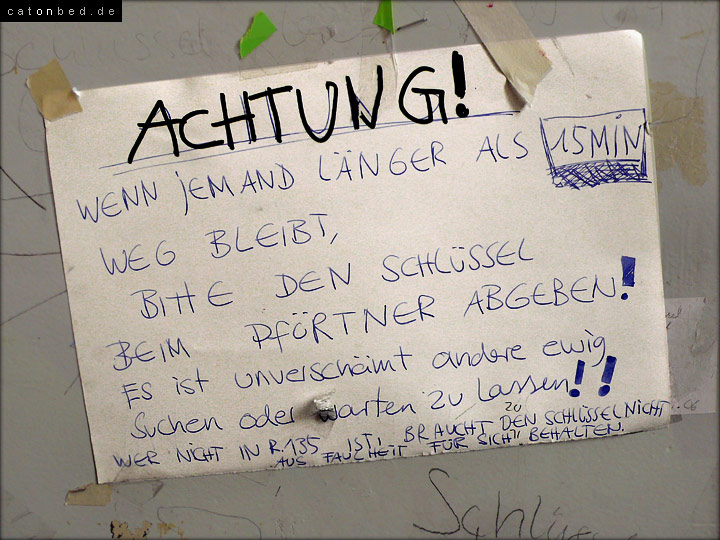 catonbed.de
ACHTUNG!
WENN JEMAND LÄNGER ALS 15MIN
WEG BLEIBT,
BITTE DEN SCHLÜSSEL
BEIM PFÖRTNER ABGEBEN!
Es ist unverschämt andere ewig
suchen oder warten zu lassen!!
WER NICHT IN R.135 IST, BRAUCHT DEN SCHLÜSSEL NICHT
AUS FAULHEIT "FÜR SICH" ZU BEHALTEN.